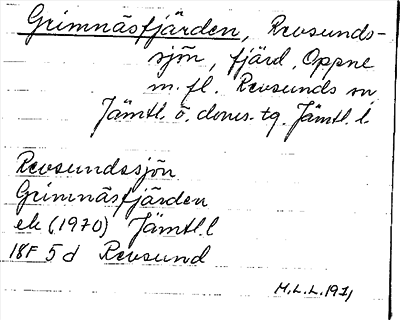 Grimnäsfjärden, Revsunds-
sjön, fjärd, Oppne
m. fl. Revsunds sn
Jämtl. ö. doms. tg. Jämtl. l.
Revsundssjön
Grimnäsfjärden
ek (1970) Jämtl. l
18F 5d Revsund
M.L.L. 1971